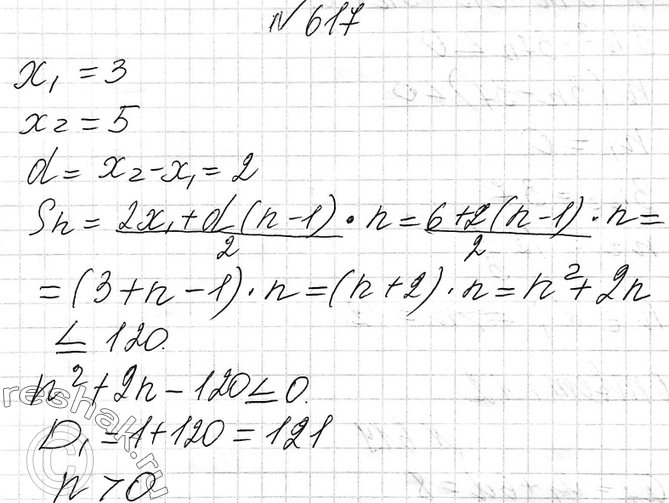 №617
x₁ = 3
x₂ = 5
d = x₂ - x₁ = 2
Sn = (2x₁ + d(n-1))/2 · n = (6+2(n-1))/2 · n =
= (3+n-1)·n = (n+2)·n = n² + 2n
≤ 120.
n² + 2n - 120 ≤ 0.
D₁ = 1+120 = 121
n > 0
reshak.ru